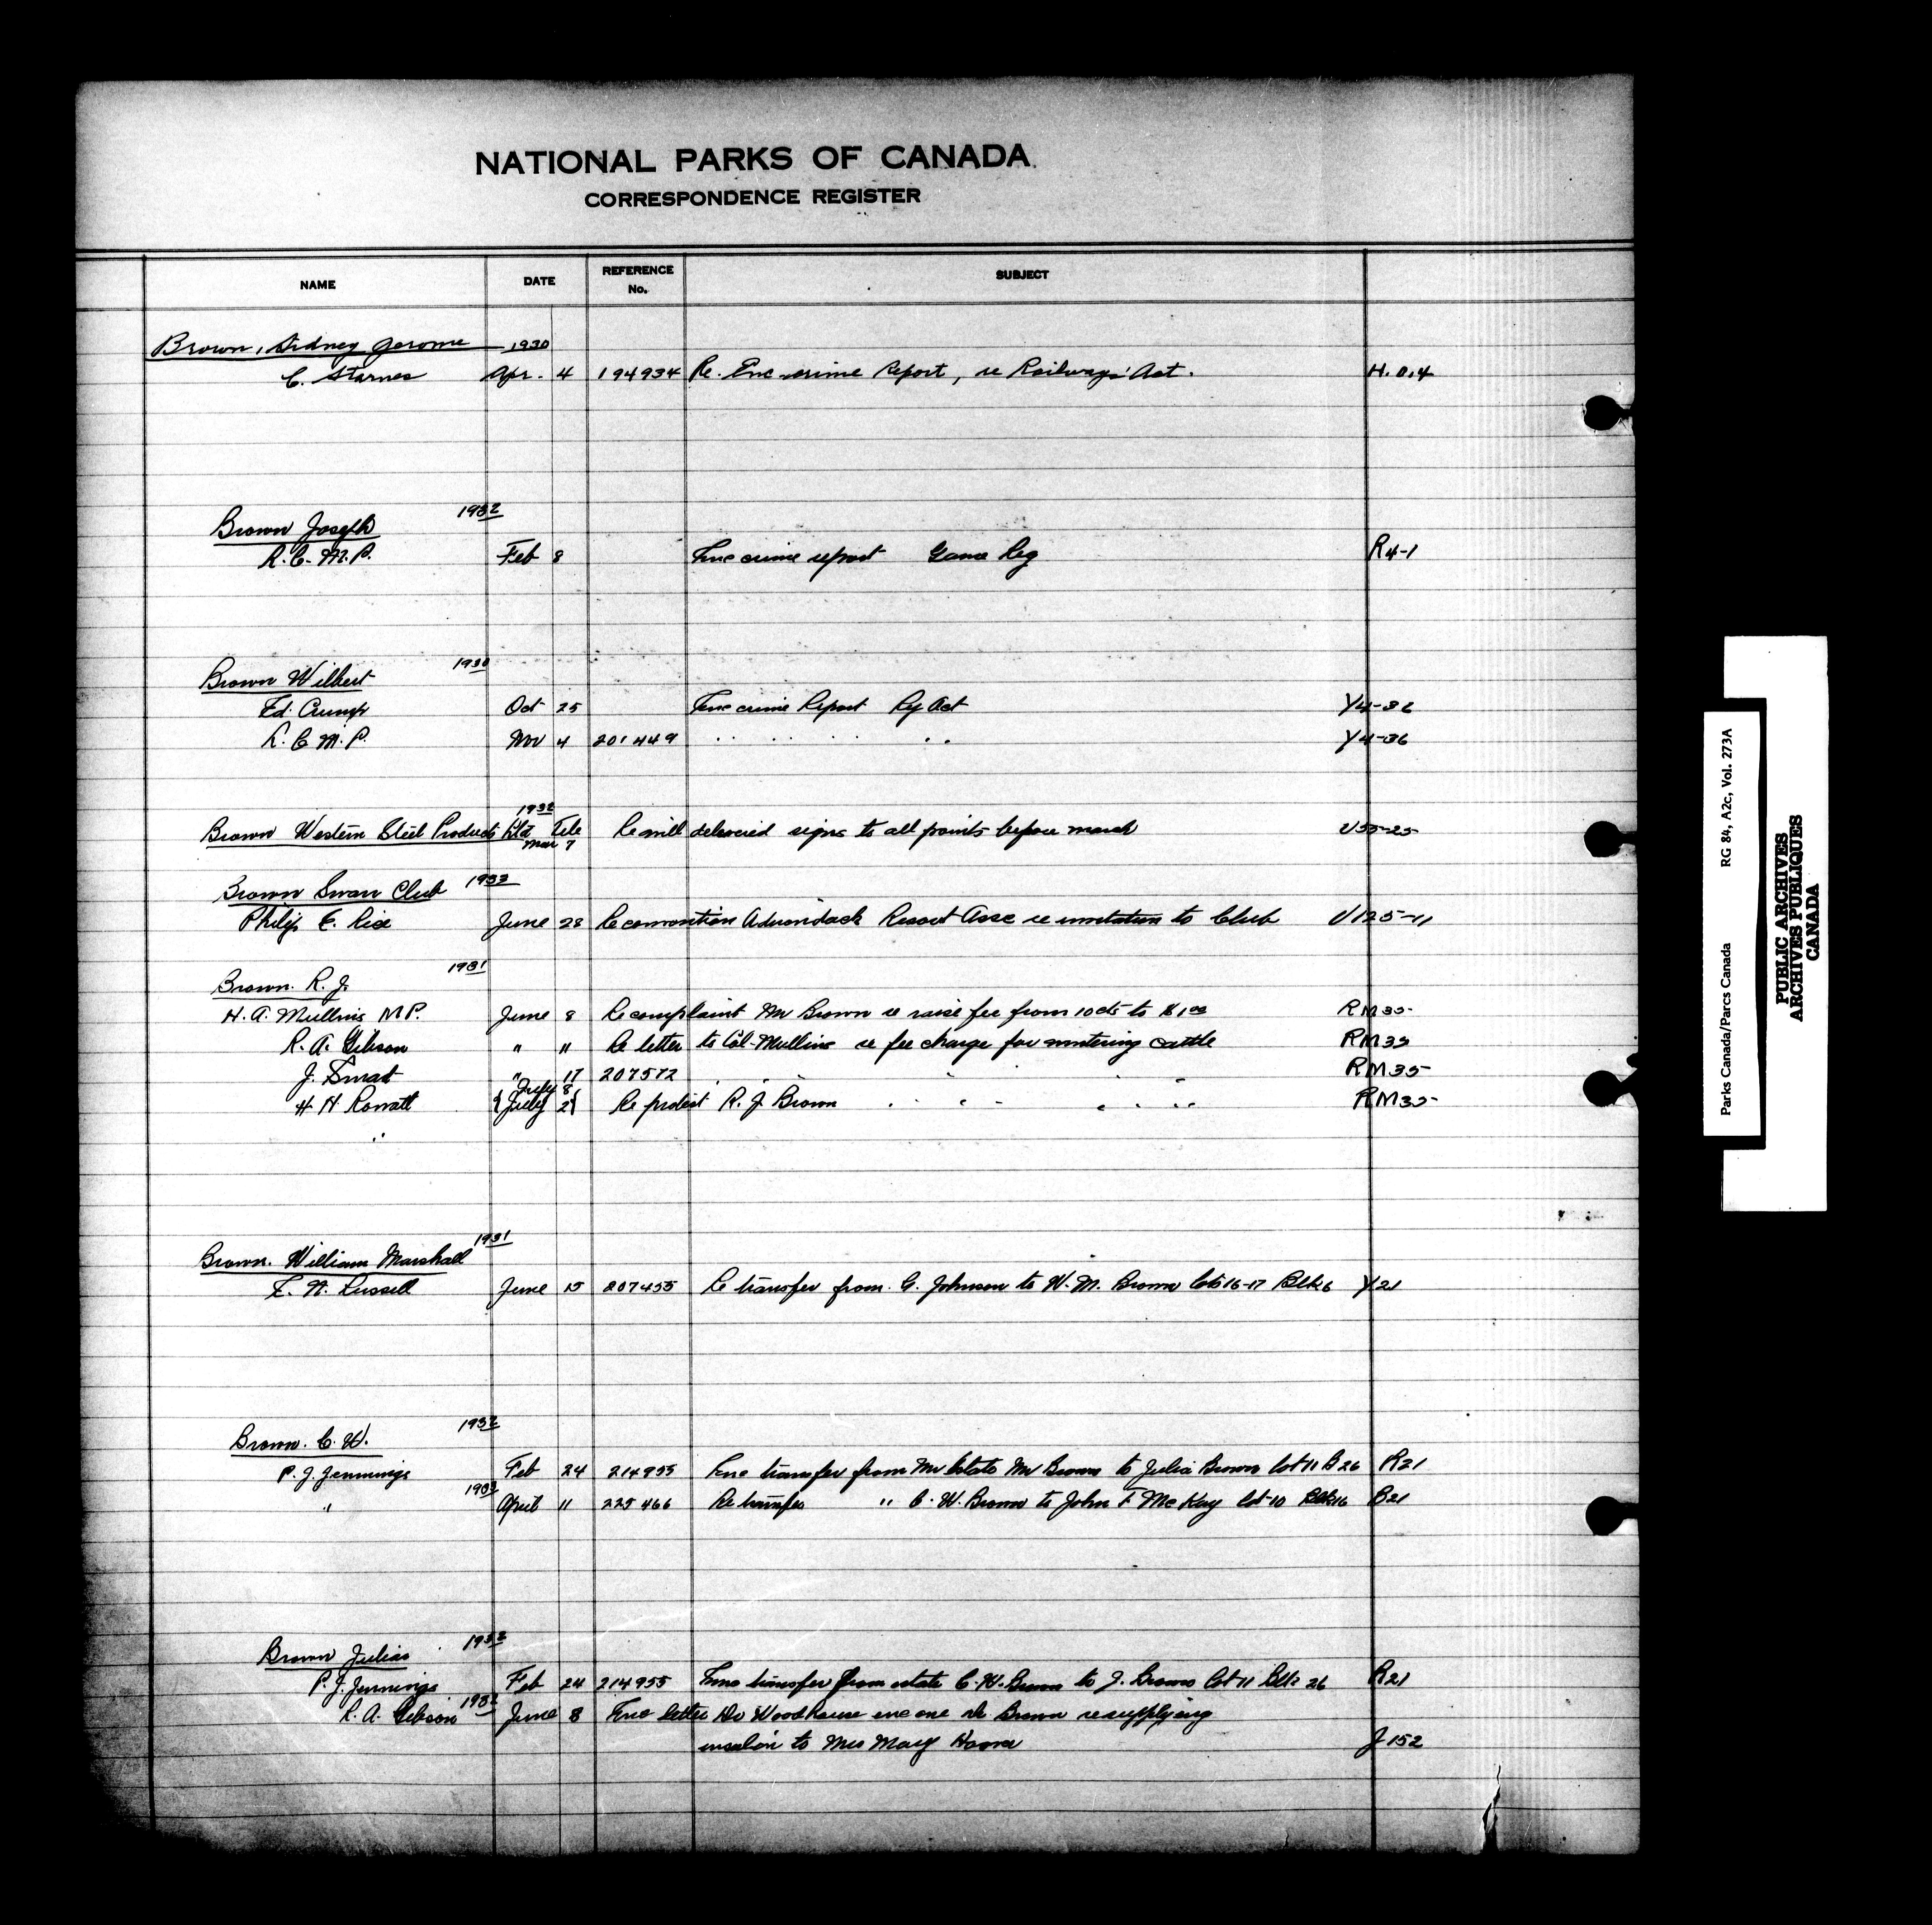 NATIONAL PARKS OF CANADA.
CORRESPONDENCE REGISTER
NAME DATE REFERENCE No. SUBJECT
Brown, Sidney Jerome 1930
C. Starnes Apr. 4 194934 Re. Enc crime Report, re Railways' Act. H.0.4
1932
Brown Joseph
R.C.M.P. Feb 8 Enc crime report Game Reg R4-1
1930
Brown Wilbert
Ed. Crump Oct 25 Enc crime Report Ry Act Y4-36
R.C.M.P. Nov 4 201449 " " " " " " Y4-36
1932
Brown Western Steel Products Ltd Tele Re will delivered signs to all points before march U55-25
Mar 7
Brown Swan Club 1933
Philip E. Rice June 28 Re convention Adirondack Resort Assc re invitation to Club U125-11
1931
Brown. R. J.
H. A. Mullins M.P. June 8 Re complaint Mr Brown re raise fee from 10cts to $1.00 RM35
R. A. Gibson " 11 Re letter to Col. Mullins re fee charge for wintering cattle RM35
J. Smart " 17 207572 " " " " RM35
July 8
H H Rowatt {July 2} Re protest R. J Brown " " " " " " RM35
"
1931
Brown. William Marshall
F. N. Russell June 15 207455 Re transfer from G. Johnson to W. M. Brown lots 16-17 Blk 6 Y21
1932
Brown. C. W.
P. J. Jennings Feb 24 214955 Enc transfer from Mr Estate Mr Brown to Julia Brown lot 11 B 26 R21
" 1933 April 11 225466 Re transfer " C. W. Brown to John F McKay lot 10 Blk 16 B21
1932
Brown Julia
P. J. Jennings Feb 24 214955 Enc transfer from estate C. W. Brown to J. Brown lot 11 Blk 26 R21
R. A. Gibson 1932 June 8 Enc letter Dr Woodhouse enc one Brown re supplying
insulin to Mrs Mary J152
Parks Canada/Parcs Canada RG 84, A2c, Vol. 273A
PUBLIC ARCHIVES
ARCHIVES PUBLIQUES
CANADA